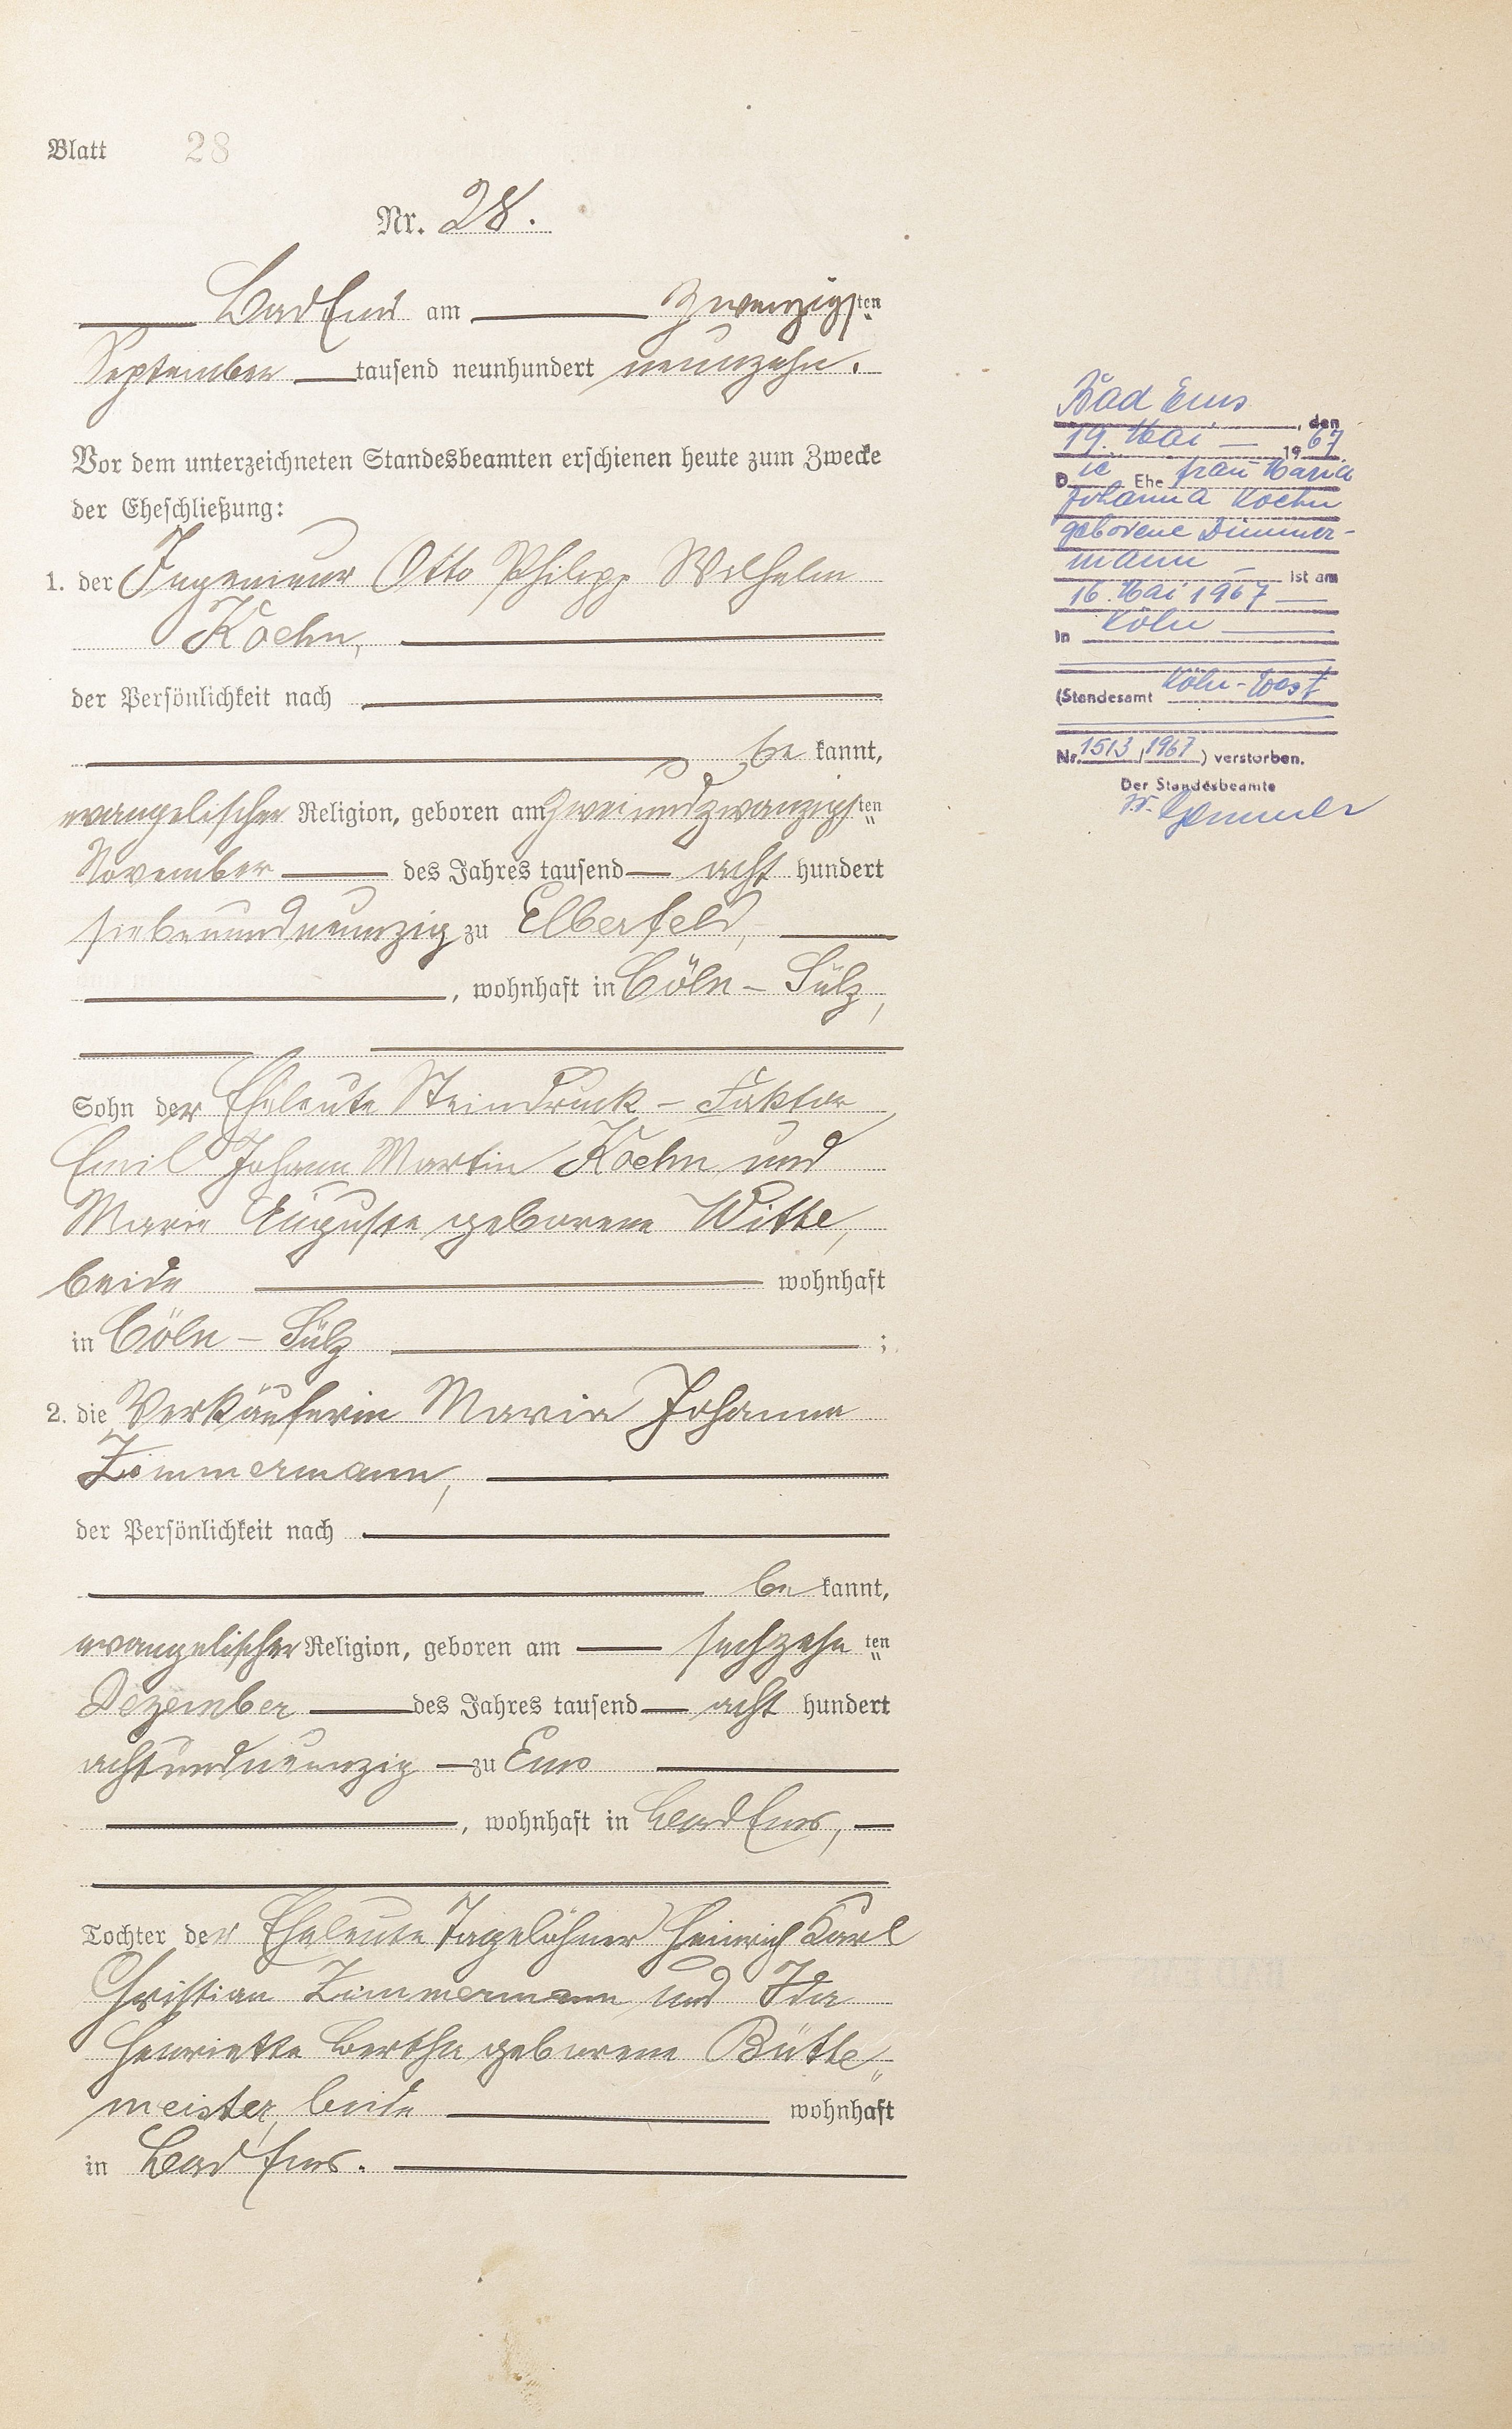 Blatt 28
Nr. 28.
Bad Ems am zwanzigsten
September tausend neunhundert neunzehn.
Vor dem unterzeichneten Standesbeamten erschienen heute zum Zwecke
der Eheschließung:
1. der Ingenieur Otto Philipp Wilhelm
Koehn,
der Persönlichkeit nach
be kannt,
evangelischer Religion, geboren am zweiundzwanzigsten
November des Jahres tausend acht hundert
siebenundneunzig zu Elberfeld,
, wohnhaft in Cöln - Sülz,
Sohn der Eheleute Steindruck - Faktor
Emil Johann Martin Koehn und
Marie Auguste geborene Witte,
beide wohnhaft
in Cöln - Sülz ;
2. die Verkäuferin Maria Johanna
Zimmermann,
der Persönlichkeit nach
be kannt,
evangelischer Religion, geboren am sechzehn ten
Dezember des Jahres tausend acht hundert
achtundneunzig zu Ems
, wohnhaft in Bad Ems,
Tochter der Eheleute Tagelöhner Heinrich Karl
Christian Zimmermann und Ida
Henriette Bertha geborene Bütte„
meister, beide wohnhaft
in Bad Ems.
Bad Ems, den
19. Mai 1967
Die Ehefrau Maria
Johanna Koehn
geborene Zimmer-
mann ist am
16. Mai 1967
in Köln
(Standesamt Köln-West
Nr. 1513/1967) verstorben.
Der Standesbeamte